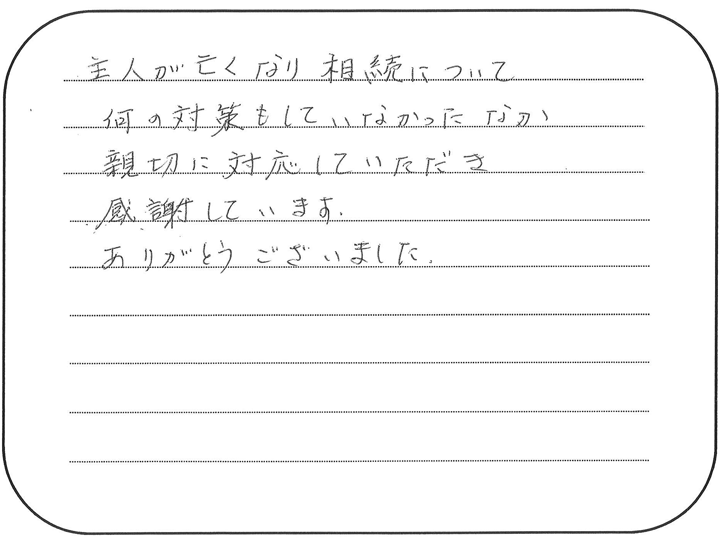 主人が亡くなり 相続について
何の対策もしていなかった なか
親切に対応していただき
感謝しています.
ありがとうございました.